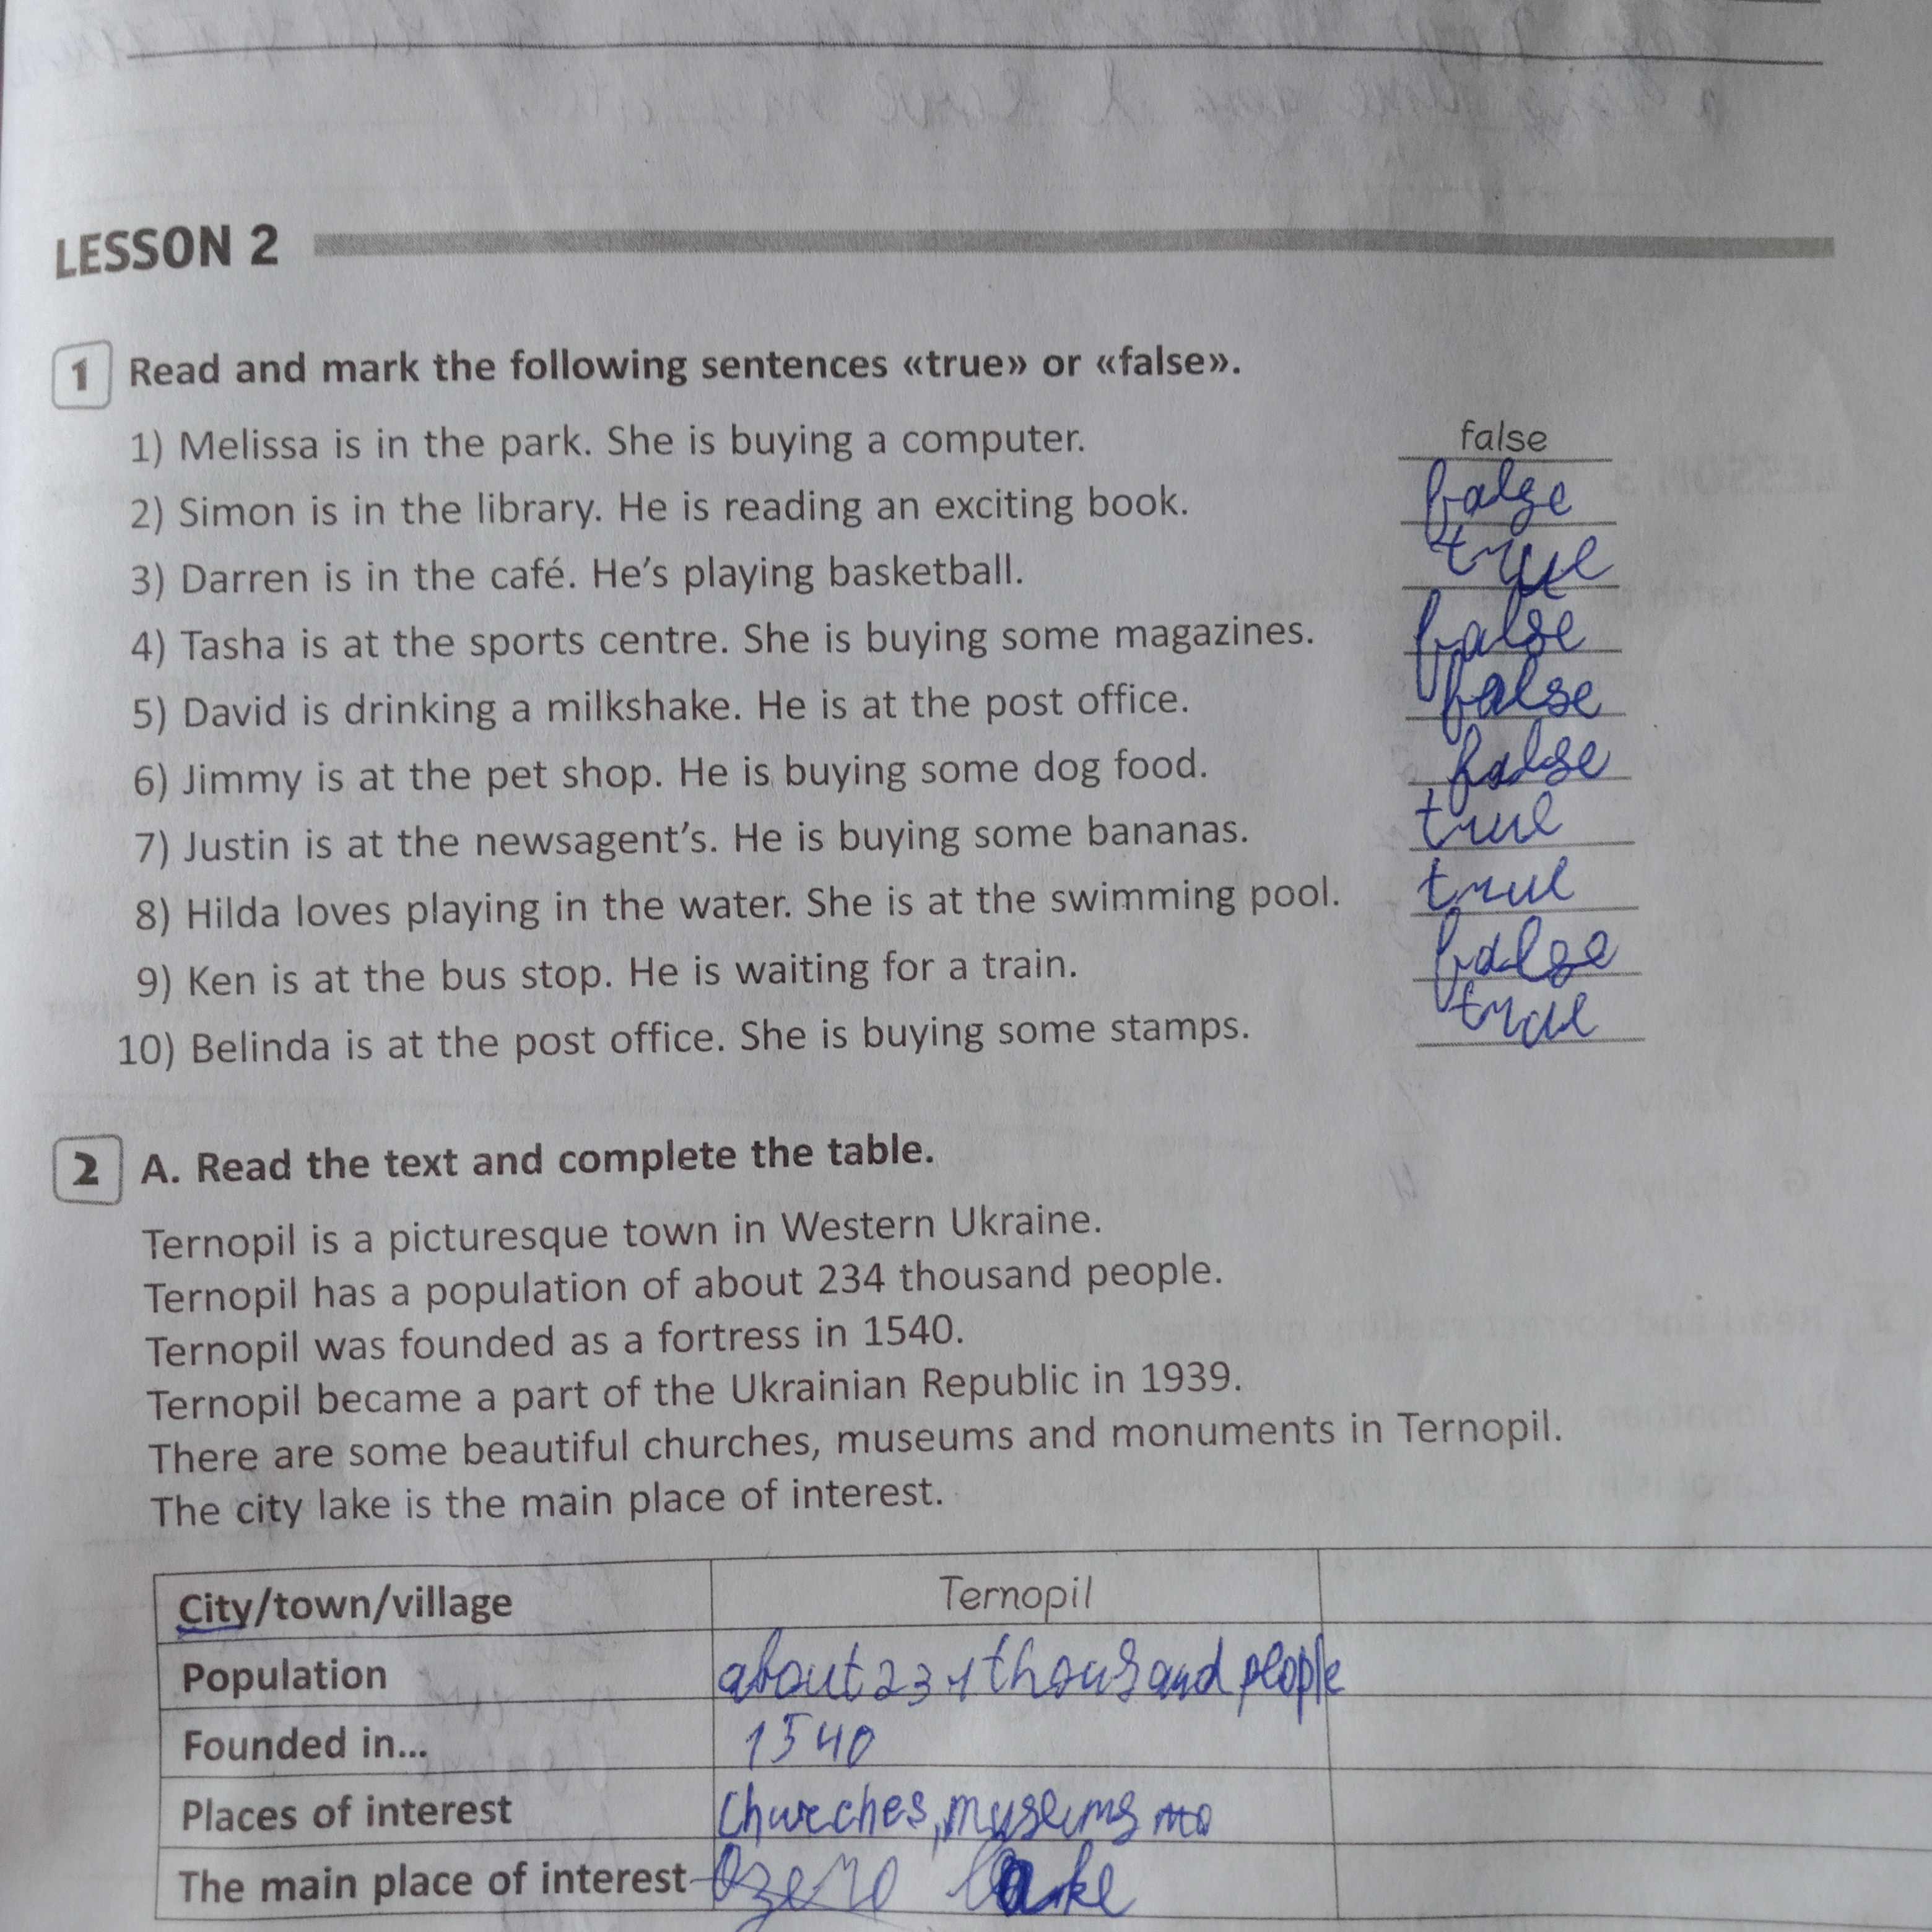 LESSON 2
1 Read and mark the following sentences «true» or «false».
1) Melissa is in the park. She is buying a computer. false
2) Simon is in the library. He is reading an exciting book. false
3) Darren is in the café. He's playing basketball. true
4) Tasha is at the sports centre. She is buying some magazines. false
5) David is drinking a milkshake. He is at the post office. false
6) Jimmy is at the pet shop. He is buying some dog food. false
7) Justin is at the newsagent's. He is buying some bananas. true
8) Hilda loves playing in the water. She is at the swimming pool. true
9) Ken is at the bus stop. He is waiting for a train. false
10) Belinda is at the post office. She is buying some stamps. true
2 A. Read the text and complete the table.
Ternopil is a picturesque town in Western Ukraine.
Ternopil has a population of about 234 thousand people.
Ternopil was founded as a fortress in 1540.
Ternopil became a part of the Ukrainian Republic in 1939.
There are some beautiful churches, museums and monuments in Ternopil.
The city lake is the main place of interest.
City/town/village Ternopil
Population about 234 thousand people
Founded in... 1540
Places of interest Churches, myseums
The main place of interest Ozero lake